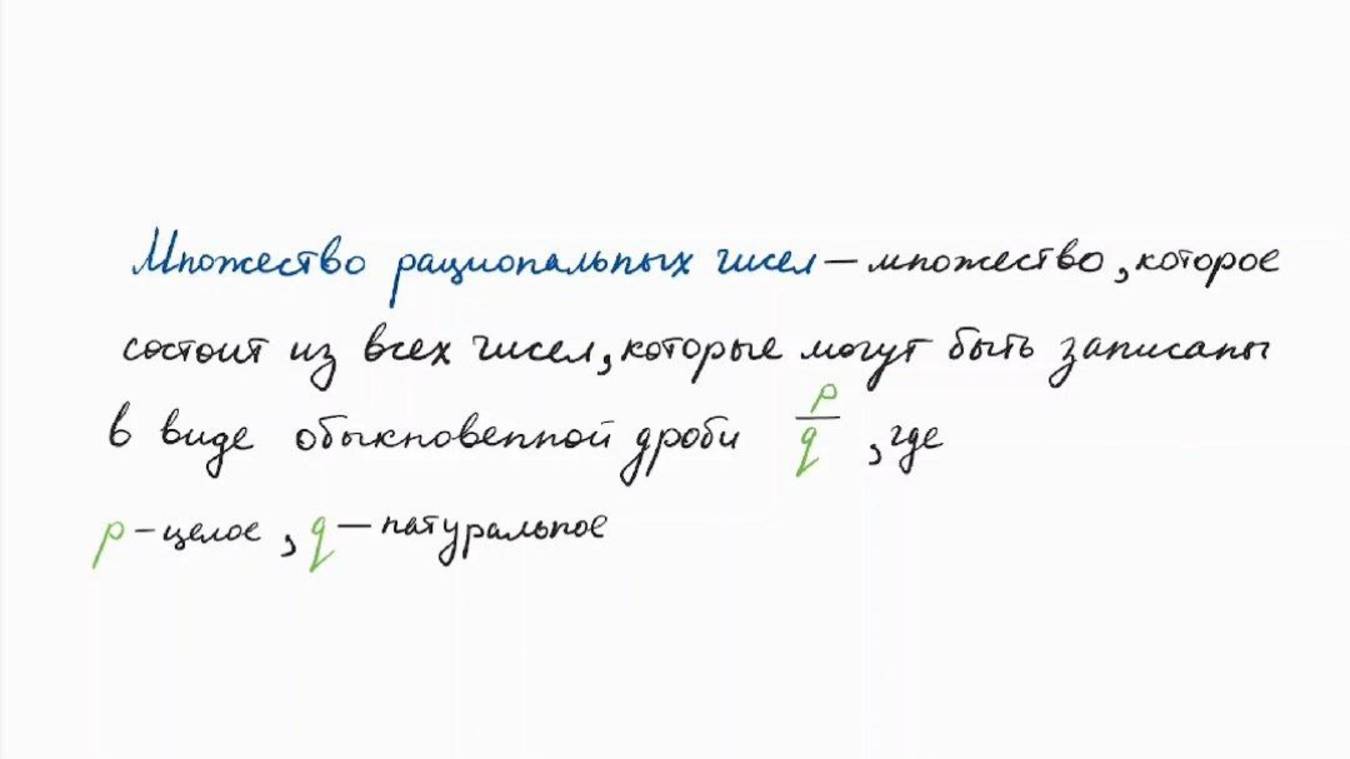 Множество рациональных чисел – множество, которое
состоит из всех чисел, которые могут быть записаны
в виде обыкновенной дроби p/q, где
p – целое, q – натуральное